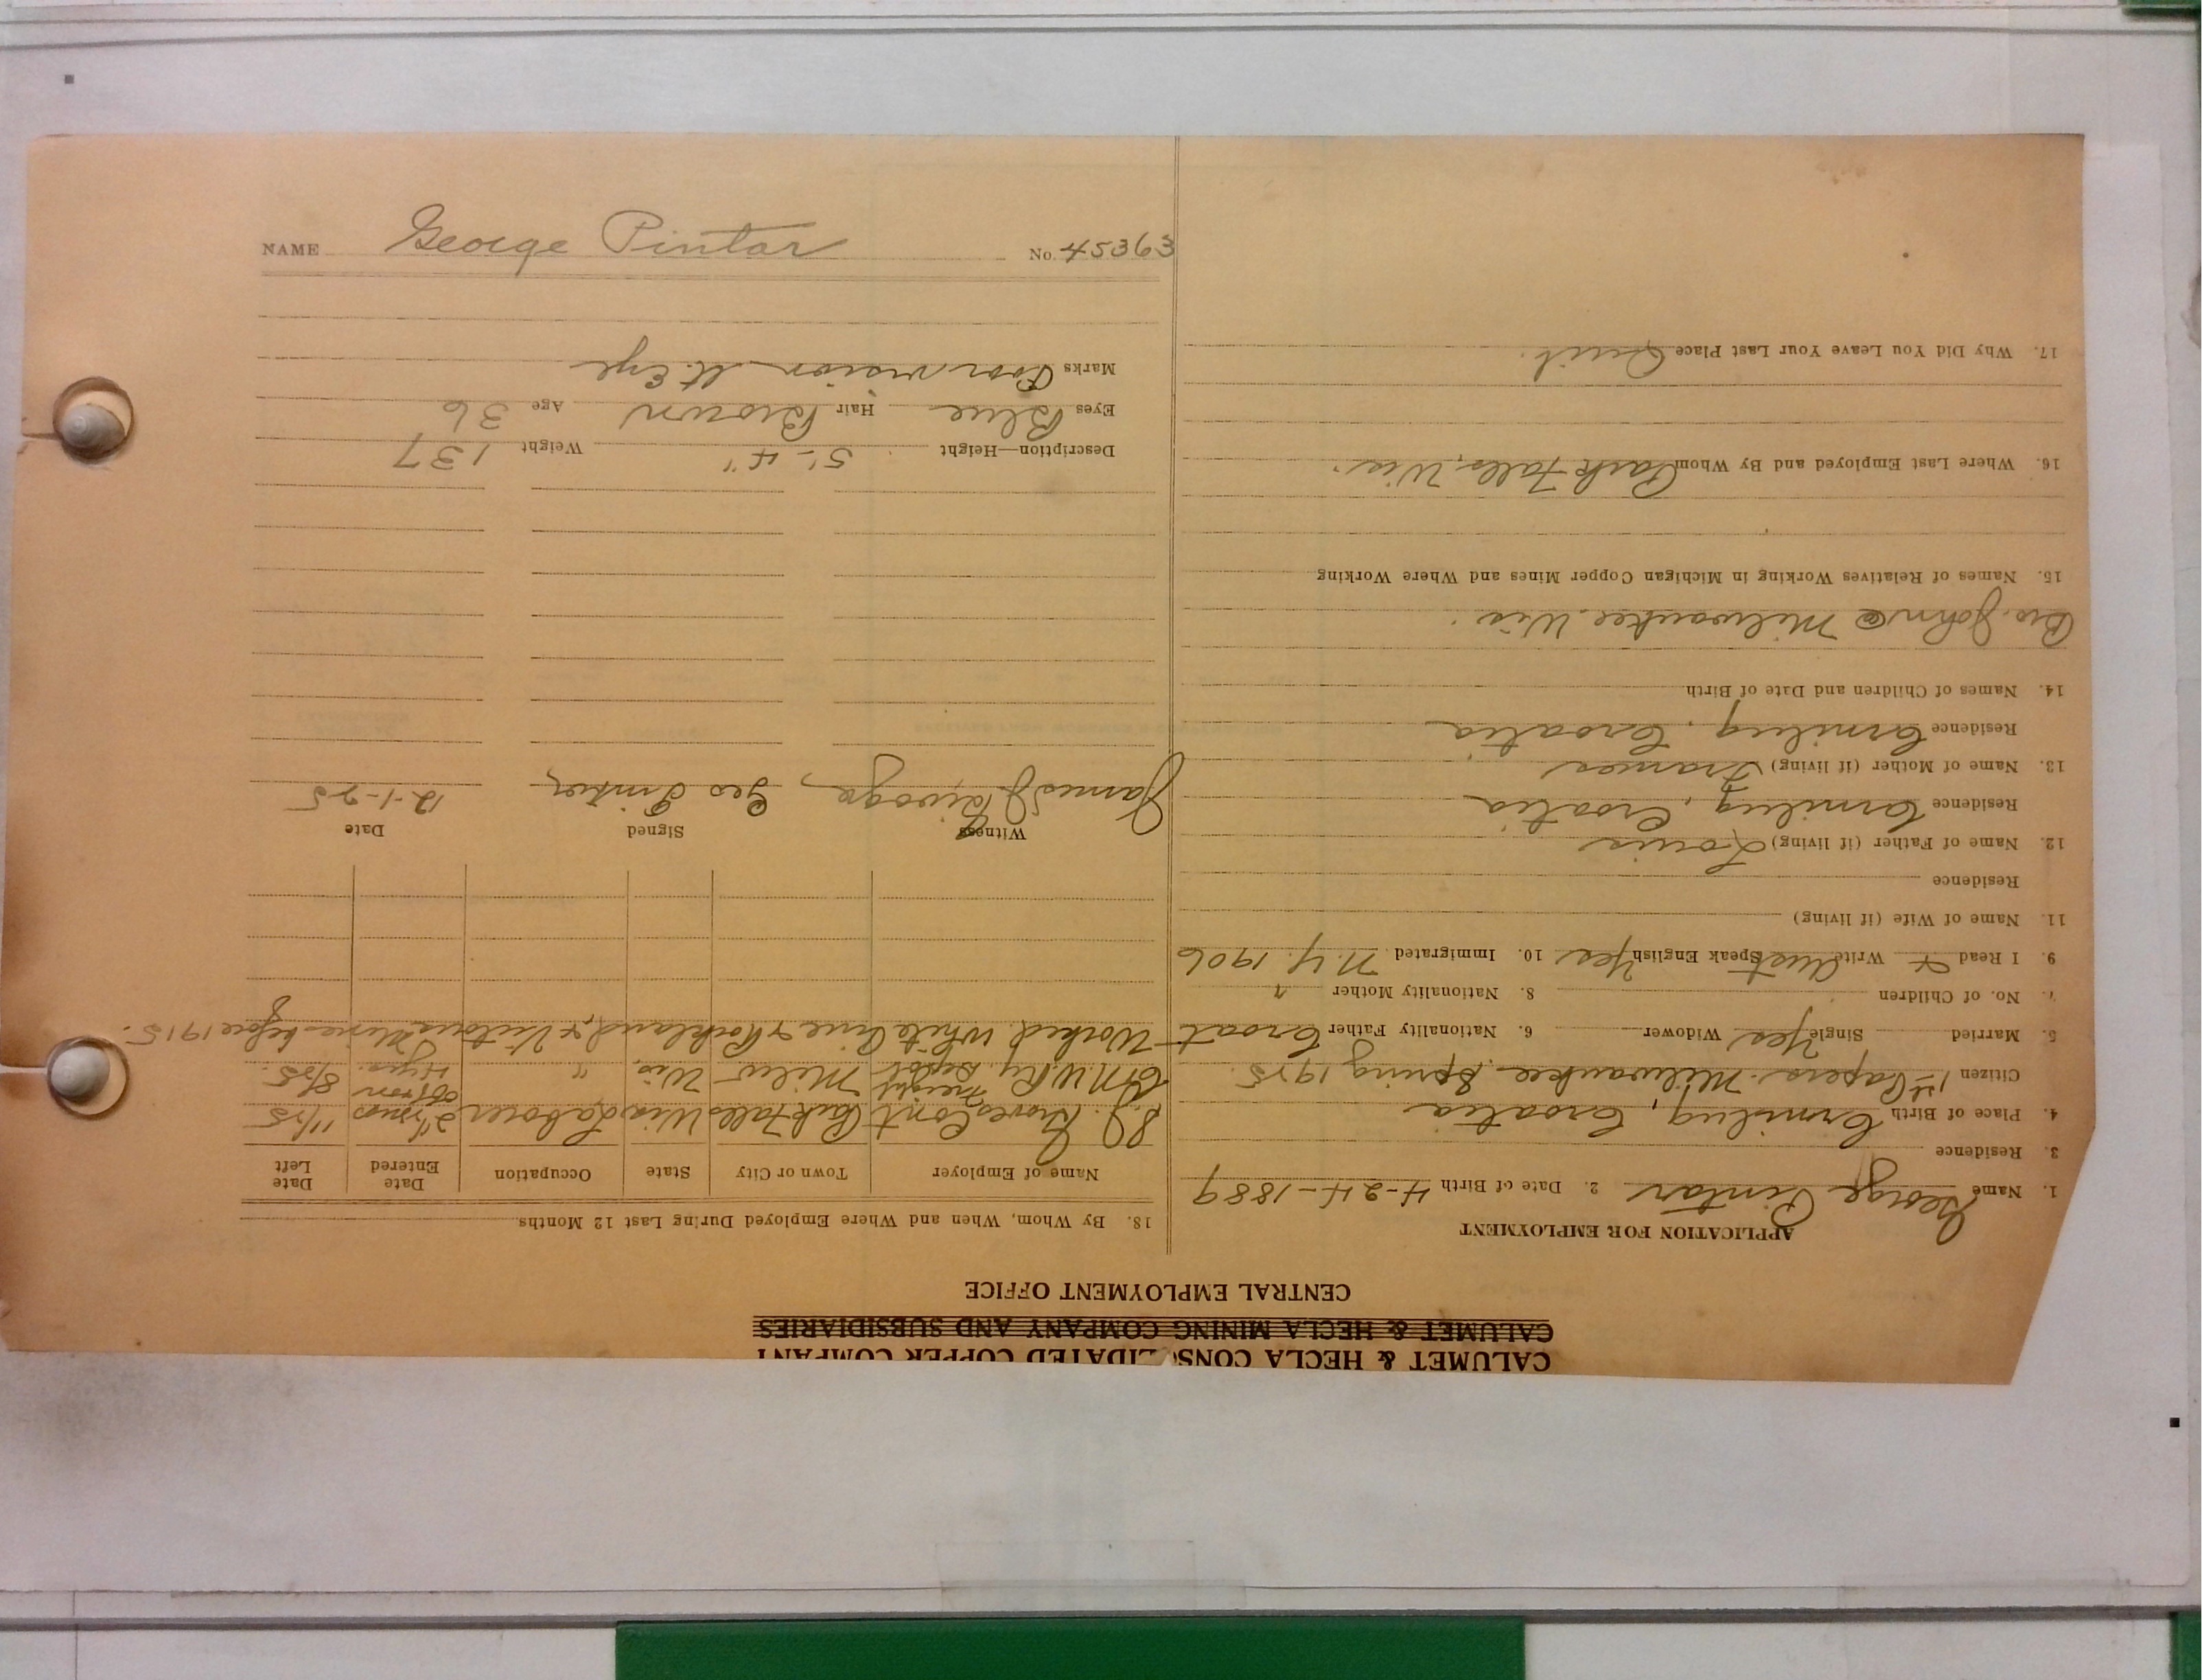 CALUMET & HECLA CONSOLIDATED COPPER COMPANY
CALUMET & HECLA MINING COMPANY AND SUBSIDIARIES
CENTRAL EMPLOYMENT OFFICE
APPLICATION FOR EMPLOYMENT
1. Name George Pintar 2. Date of Birth 4-24-1889
3. Residence
4. Place of Birth Croatia
Citizen 1st Papers. Milwaukee Spring 1925.
5. Married Single Yes Widower 6. Nationality Father Croat
7. No. of Children 8. Nationality Mother "
9. I Read & Write Aust Speak English Yes 10. Immigrated N.Y. 1906
11. Name of Wife (if living)
Residence
12. Name of Father (if living) Louis
Residence Croatia
13. Name of Mother (if living) Frances
Residence Croatia
14. Names of Children and Date of Birth
Bro. John @ Milwaukee, Wis.
15. Names of Relatives Working in Michigan Copper Mines and Where Working
16. Where Last Employed and By Whom Park Falls, Wis.
17. Why Did You Leave Your Last Place Quit.
18. By Whom, When and Where Employed During Last 12 Months
Name of Employer Town or City State Occupation Date Entered Date Left
Cont Park Falls Wis Laborer 2½ mos 11/25
C&N.W.Ry. Freight Depot Milw Wis. " off & on 4 yrs. 8/25.
Worked White Pine & Rockland, & Victoria Mine before 1915.
Witness Signed Date
James Geo Pintar 12-1-25
Description—Height 5'-4" Weight 137
Eyes Blue Hair Brown Age 36
Marks Poor vision lt. Eye
NAME George Pintar No. 45363